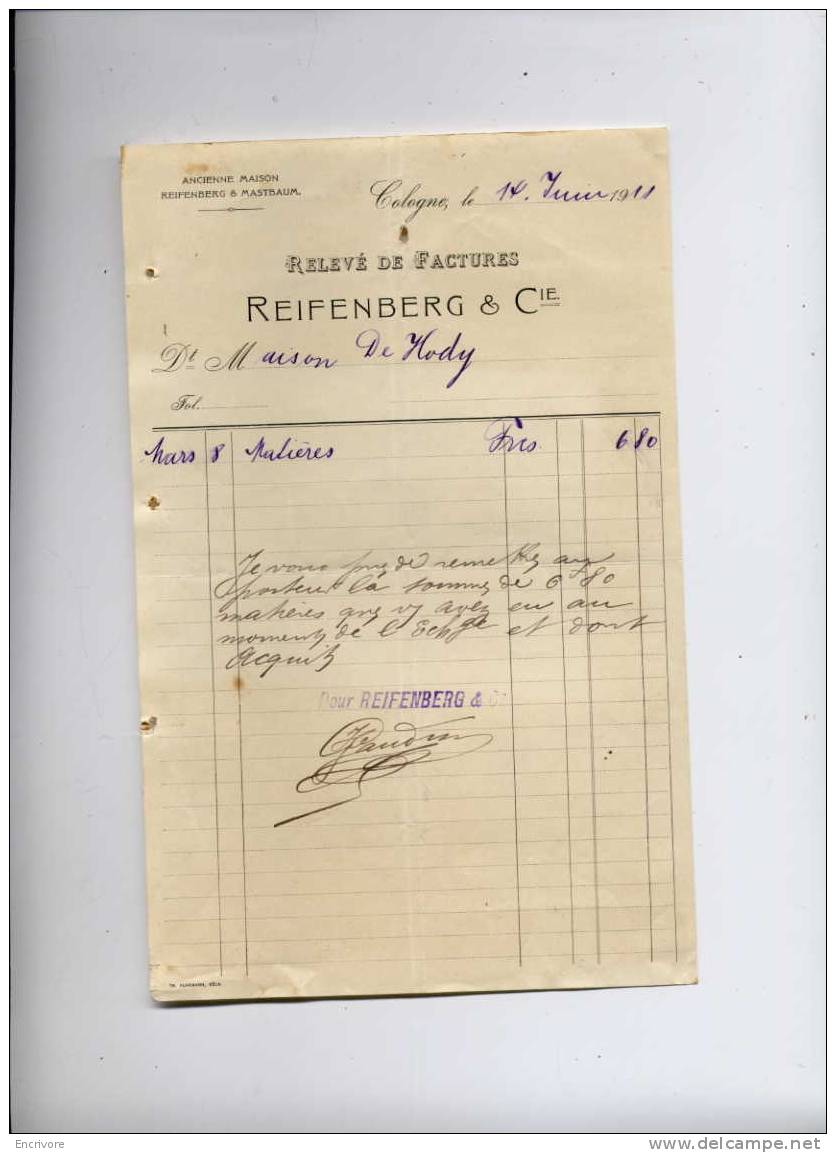 ANCIENNE MAISON
REIFENBERG & MASTBAUM.
Cologne, le 14. Juin 1911
RELEVÉ DE FACTURES
REIFENBERG & CIE.
Dt Maison De Hody
Fol.
Mars 8 Matières Frcs. 6 80
Je vous prie de remettre au
porteur la somme de 6 80
matières que vs avez eu au
moment de l'Echge et dont
Acquit
Pour REIFENBERG & Co
Encrivore
www.delcampe.net